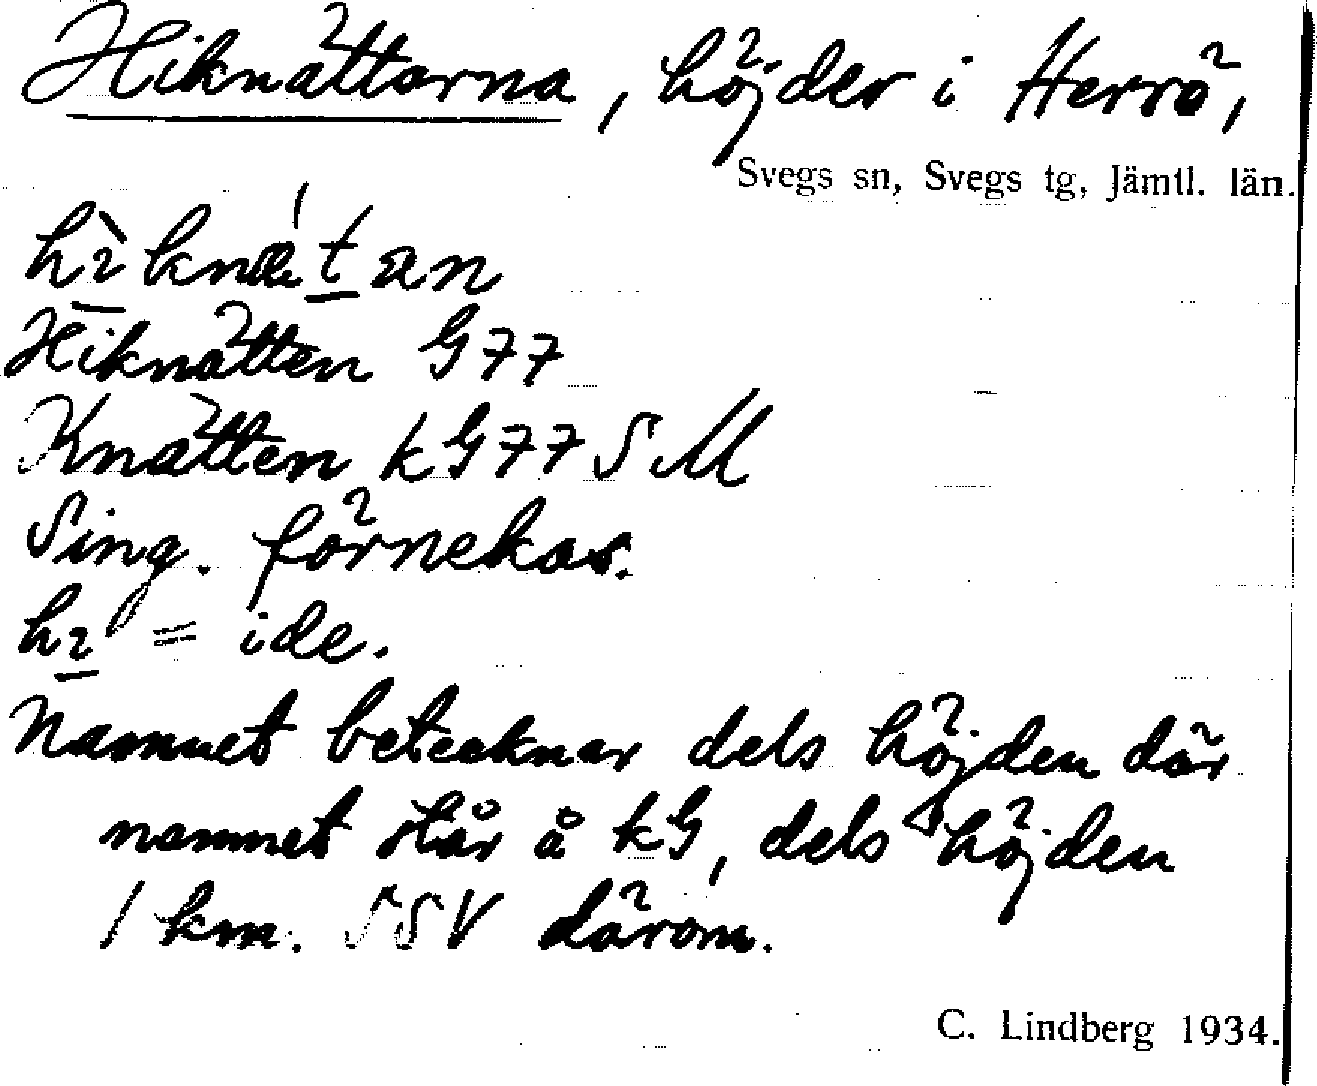 Hiknättarna, höjder i Herrö,
Svegs sn, Svegs tg, Jämtl. län.
Hiknätten G77
Knätten kG77SM
Sing. förnekas.
= ide.
Namnet betecknar dels höjden där
namnet står å kG, dels höjden
1 km. SSV därom.
C. Lindberg 1934.